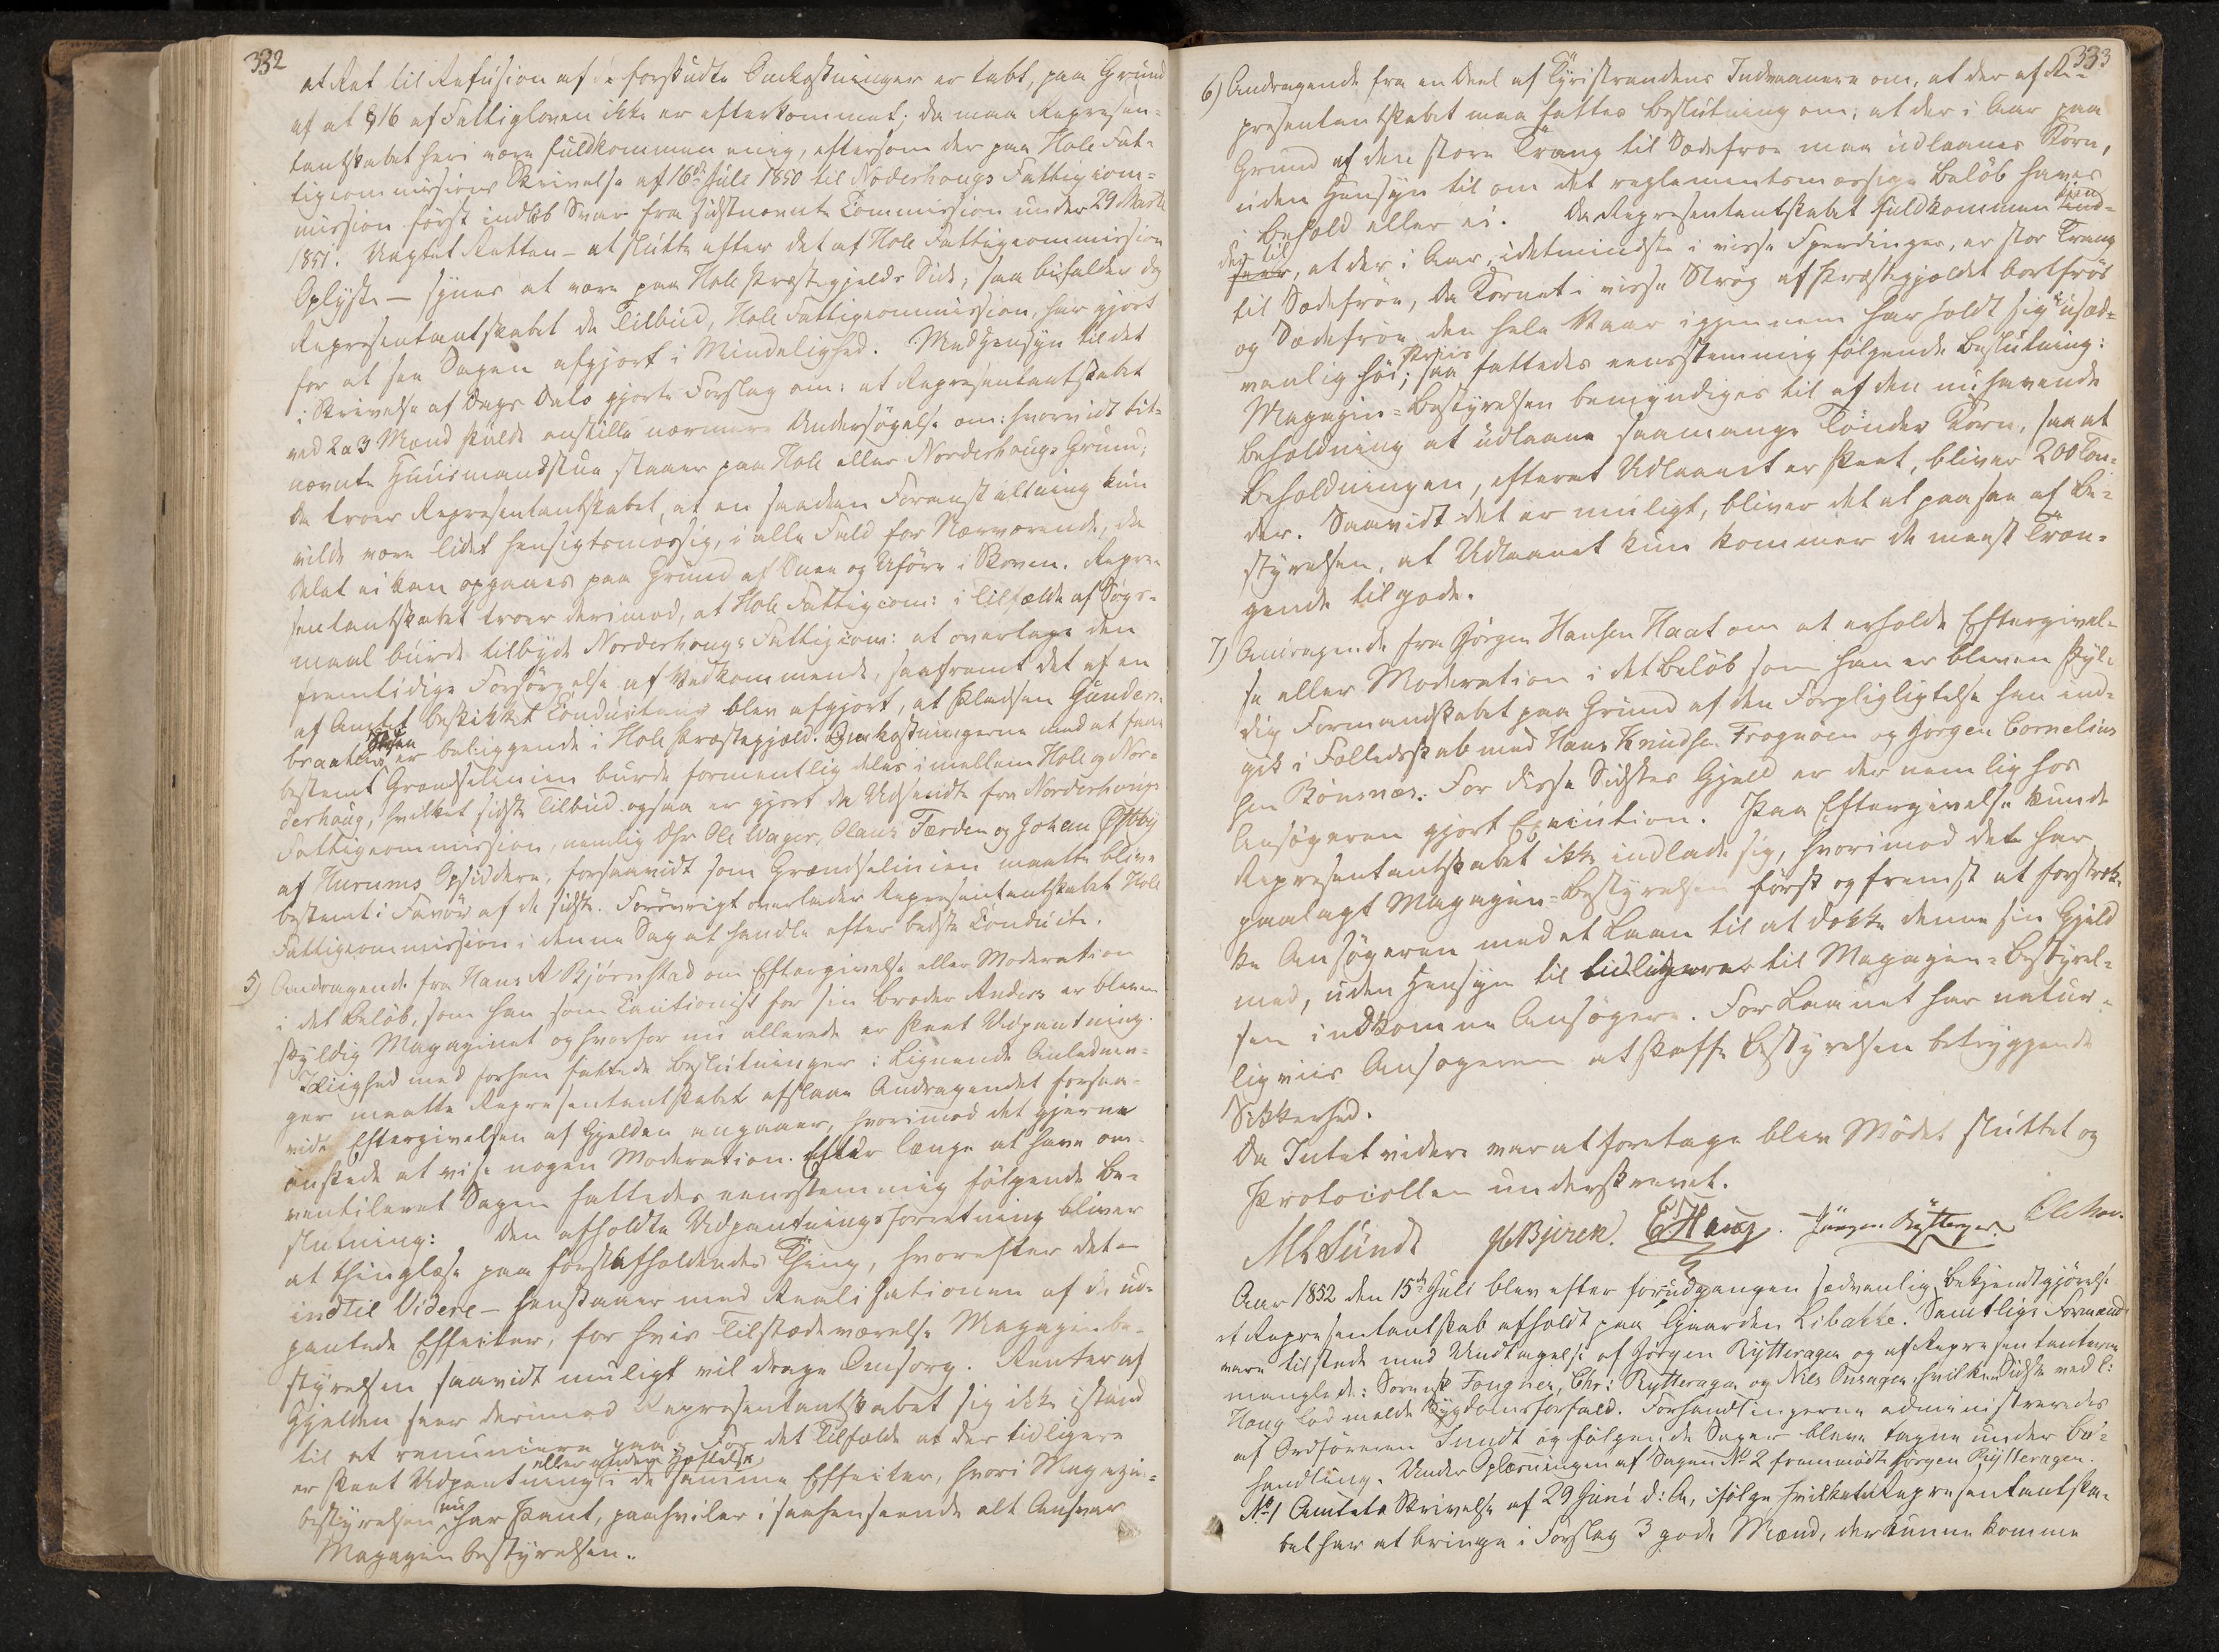 332
at Ret til Refusion af de forskudte Omkostninger er tabt, paa Grund
af at § 16 af Fattigloven ikke er efterkommet; da maa Represen-
tantskabet heri være fuldkommen enig, eftersom der paa Hole Fat-
tigcommissions Skrivelse af 16de Juli 1850 til Noderhougs Fattigcom-
mission först indlöb Svar fra sidstnævnte Commission under 29 Marts
1851. Uagtet Retten – at slutte efter det af Hole Fattigcommission
Oplyste – synes at være paa Hole Præstegjelds Side, saa bifalder dog
Representantskabet de Tilbud, Hole Fattigcommission, har gjort
for at faa Sagen afgjort i Mindelighed. Med Hensyn til det
i Skrivelse af Dags Dato gjorte Forslag om: at Representantskabet
ved 2 a 3 Mænd skulde anstille nærmere Undersögelse om: hvorvidt bit-
nævnte Huusmandstue staaer paa Hole eller Norderhougs Grund;
da troer Representantskabet, at en saadan Foranstaltning kun
vilde være lidet hensigtsmæssig, i alle Fald for Nærværende, da
Delet ei kan opgaaes paa Grund af Snee og Uföre i Skoven. Repre-
sentantskabet troer derimod, at Hole Fattigcom: i Tilfælde af Søgs-
maal burde tilbyde Norderhougs Fattigcom: at overtage den
fremtidige Forsörgelse af Vedkommende, saafremt det af en
af Amtet beskikket Conducteur blev afgjort, at Pladsen Gunders-
braaten er beliggende i Hole Præstegjæld. Omkostningerne med at faae
bestemt Grændselinien burde formentlig deles imellem Hole og Nor-
derhoug, hvilket sidste Tilbud ogsaa er gjort de Udsendte fra Norderhougs
Fattigcommission, nemlig Dhr Ole Wager, Olaus Færden og Johan Østby
af Hurums Opsiddere, forsaavidt som Grændselinien maatte blive
bestemt i Favör af de sidste. Foröwrigt overlader Representantskabet Hole
Fattigcommission i denne Sag at handle efter bedste Conduite.
5) Andragende fra Hans A Bjørnstad om Eftergivelse eller Moderation
i det Beløb, som han som Cautionist for sin Broder Anders er bleven
skyldig Magazinet og hvorfor nu allerede er skeet Udpantning.
I Lighed med forhen fattede Beslutninger i lignende Anlednin-
ger maatte Representantskabet afslaae Andragendet forsaa-
vidt Eftergivelsen af Gjelden angaaer, hvorimod det gjerne
önskede at vise nogen Moderation. Efter længe at have om-
ventileret Sagen fattedes eenstemmig fölgende Be-
slutning: Den afholdte Udpantningsforretning bliver
at thinglæse paa förstafholdendes Thing, hvorefter det –
indtil Videre – henstaaer med Realisationen af de ud-
pantede Effecter, for hvis Tilstædeværelse Magazinbe-
styrelsen saavidt muligt vil drage Omsorg. Renter af
Gjelden seer derimod Representantskabet sig ikke istand
til at renuncere paa. For det Tilfælde at der tidligere
er skeet Udpantning eller anden Hæftelse i de samme Effecter, hvori Magazin-
bestyrelsen nu har Pant, paahviler i saahenseende alt Ansvar
Magazinbestyrelsen.
333
6) Andragende fra en Deel af Tyristrandens Indvaanere om, at der af Re-
presentantskabet maa fattes Beslutning om; at der i Aar paa
Grund af den store Trang til Sædefröe maa udlaanes Korn,
uden Hensyn til om det reglementsmæssige Belöb haves
i Behold eller ei. Da Representantskabet fuldkommen kien-
der til, at der i Aar, idetmindste i visse Fjerdinger, er stor Trang
til Sædefröe, da Kornet i visse Strög af Præstegjældet bortfrös
og Sædefröe den hele Vaar igjennem har holdt sig i usæd-
vanlig höi Priis; saa fattedes eensstemmig fölgende Beslutning:
Magazin-Bestyrelsen bemyndiges til af den nuhavende
Beholdning at udlaane saamange Tönder Korn, saa at
Beholdningen, efterat Udlaanet er skeet, bliver 200 Tön-
der. Saavidt det er muligt, bliver det at paasee af Be-
styrelsen, at Udlaanet kun kommer de meest Træn-
gende tilgode.
7) Andragende fra Jörgen Hansen Haat om at erholde Eftergivel-
se eller Moderation i det Belöb som han er bleven skyl-
dig Formandskabet paa Grund af den Forpligligtelse han ind-
gik i Fælledsskab med Hans Knudsen Frognöen og Jörgen Cornelius
sen Bönsnæs. For disse Sidstes Gjeld er der nemlig hos
Ansögeren gjort Execution. Paa Eftergivelse kunde
Representantskabet ikke indlade sig, hvorimod det har
paalagt Magazin-Bestyrelsen först og fremst at forstræk-
ke Ansögeren med et Laan til at dække denne sin Gjeld
med, uden Hensyn til tidligere til Magazin-Bestyrel-
sen indkomne Ansögere. For Laanet har natur-
ligviis Ansögeren at skaffe Bestyrelsen betryggende
Sikkerhed.
Da Intet videre var at foretage blev Mödet sluttet og
Protocollen underskrevet.
ML Sundt Bjerck. EHoug. Jörgen Rytterager Ole Moe.
Aar 1852 den 15de Juli blev efter forudgangen sædvanlig Bekjendtgjörelse
et Representantskab afholdt paa Gaarden Libakke. Samtlige Formænd
vare tilstede med Undtagelse af Jörgen Rytteragen og af Representanterne
manglede: Sorenskr Fougner, Chr: Rytteragen og Niels Onsagen, hvilken Sidste ved C:
Houg lod melde Sygdomsforfald. Forhandlingerne administreredes
af Ordföreren Sundt og fölgende Sager bleve tagne under Be-
handling. Under Oplæsningen af Sagen No 2 fremmödte Jörgen Rytteragen.
No 1 Amtets Skrivelse af 29 Juni d: A, ifölge hvilken Representantska-
bet har at bringe i Forslag 3 gode Mænd, der kunne komme